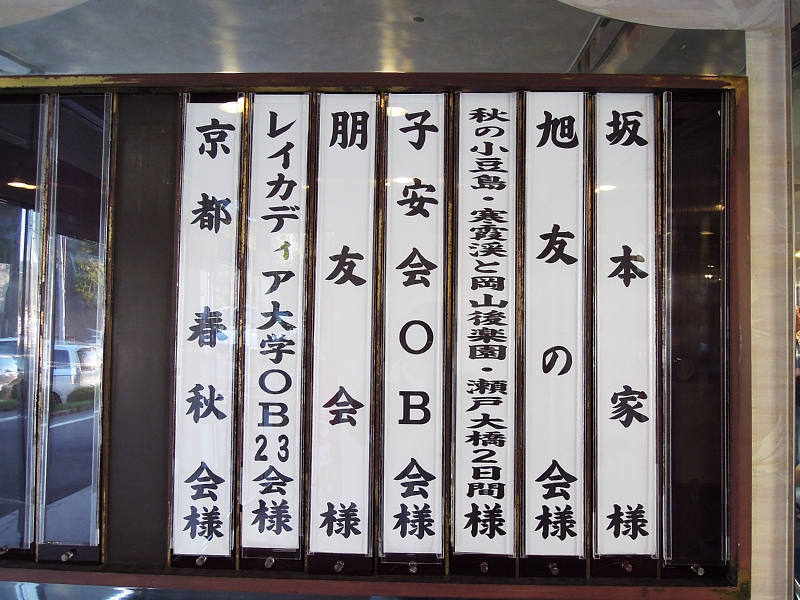 坂本家様
旭友の会様
秋の小豆島・寒霞渓と岡山後楽園・瀬戸大橋2日間様
子安会OB会様
朋友会様
レイカディア大学OB23会様
京都春秋会様